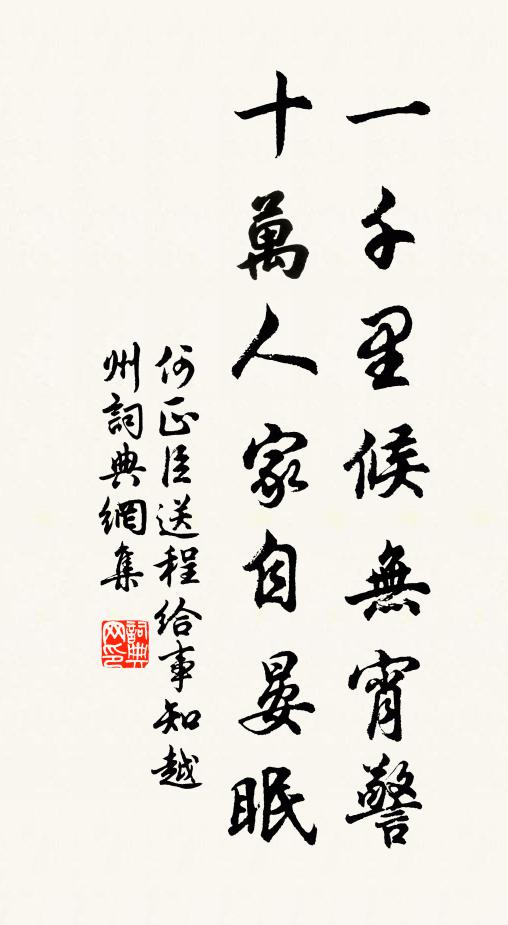 一千里候無宵警
十萬人家自晏眠
何正臣送程給事知越
州詞典網集
詞典
网印